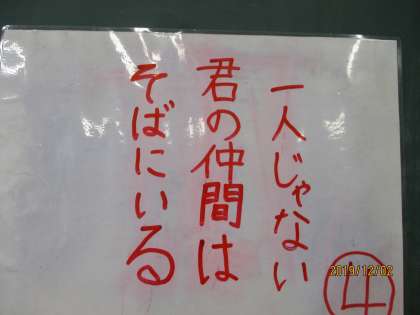 一人じゃない
君の仲間は
そばにいる
2019/12/02